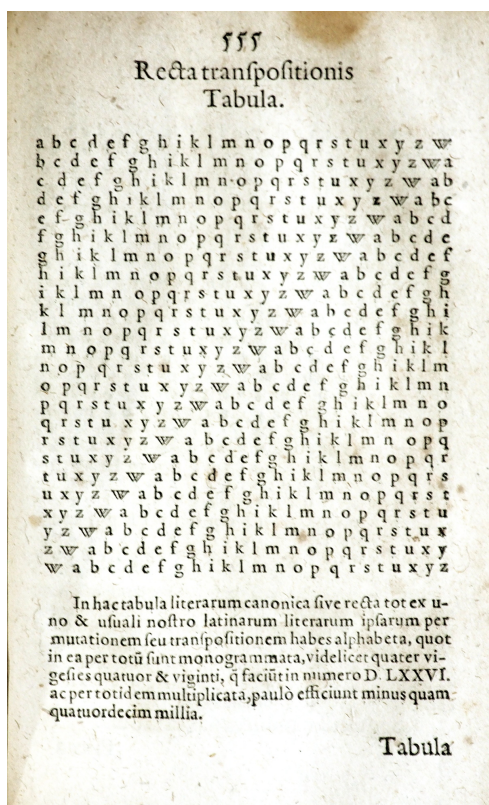 555
Recta tranſpoſitionis
Tabula.
a b c d e f g h i k l m n o p q r s t u x y z w
b c d e f g h i k l m n o p q r s t u x y z w a
c d e f g h i k l m n o p q r s t u x y z w a b
d e f g h i k l m n o p q r s t u x y z w a b c
e f g h i k l m n o p q r s t u x y z w a b c d
f g h i k l m n o p q r s t u x y z w a b c d e
g h i k l m n o p q r s t u x y z w a b c d e f
h i k l m n o p q r s t u x y z w a b c d e f g
i k l m n o p q r s t u x y z w a b c d e f g h
k l m n o p q r s t u x y z w a b c d e f g h i
l m n o p q r s t u x y z w a b c d e f g h i k
m n o p q r s t u x y z w a b c d e f g h i k l
n o p q r s t u x y z w a b c d e f g h i k l m
o p q r s t u x y z w a b c d e f g h i k l m n
p q r s t u x y z w a b c d e f g h i k l m n o
q r s t u x y z w a b c d e f g h i k l m n o p
r s t u x y z w a b c d e f g h i k l m n o p q
s t u x y z w a b c d e f g h i k l m n o p q r
t u x y z w a b c d e f g h i k l m n o p q r s
u x y z w a b c d e f g h i k l m n o p q r s t
x y z w a b c d e f g h i k l m n o p q r s t u
y z w a b c d e f g h i k l m n o p q r s t u x
z w a b c d e f g h i k l m n o p q r s t u x y
w a b c d e f g h i k l m n o p q r s t u x y z
In hac tabula literarum canonica ſive recta tot ex u-
no & uſuali noſtro latinarum literarum ipſarum per
mutationem ſeu tranſpoſitionem habes alphabeta, quot
in ea per totū ſunt monogrammata, videlicet quater vi-
geſies quatuor & viginti, q̄ faciūt in numero D. LXXVI.
ac per totidem multiplicata, paulò efficiunt minus quam
quatuordecim millia.
Tabula